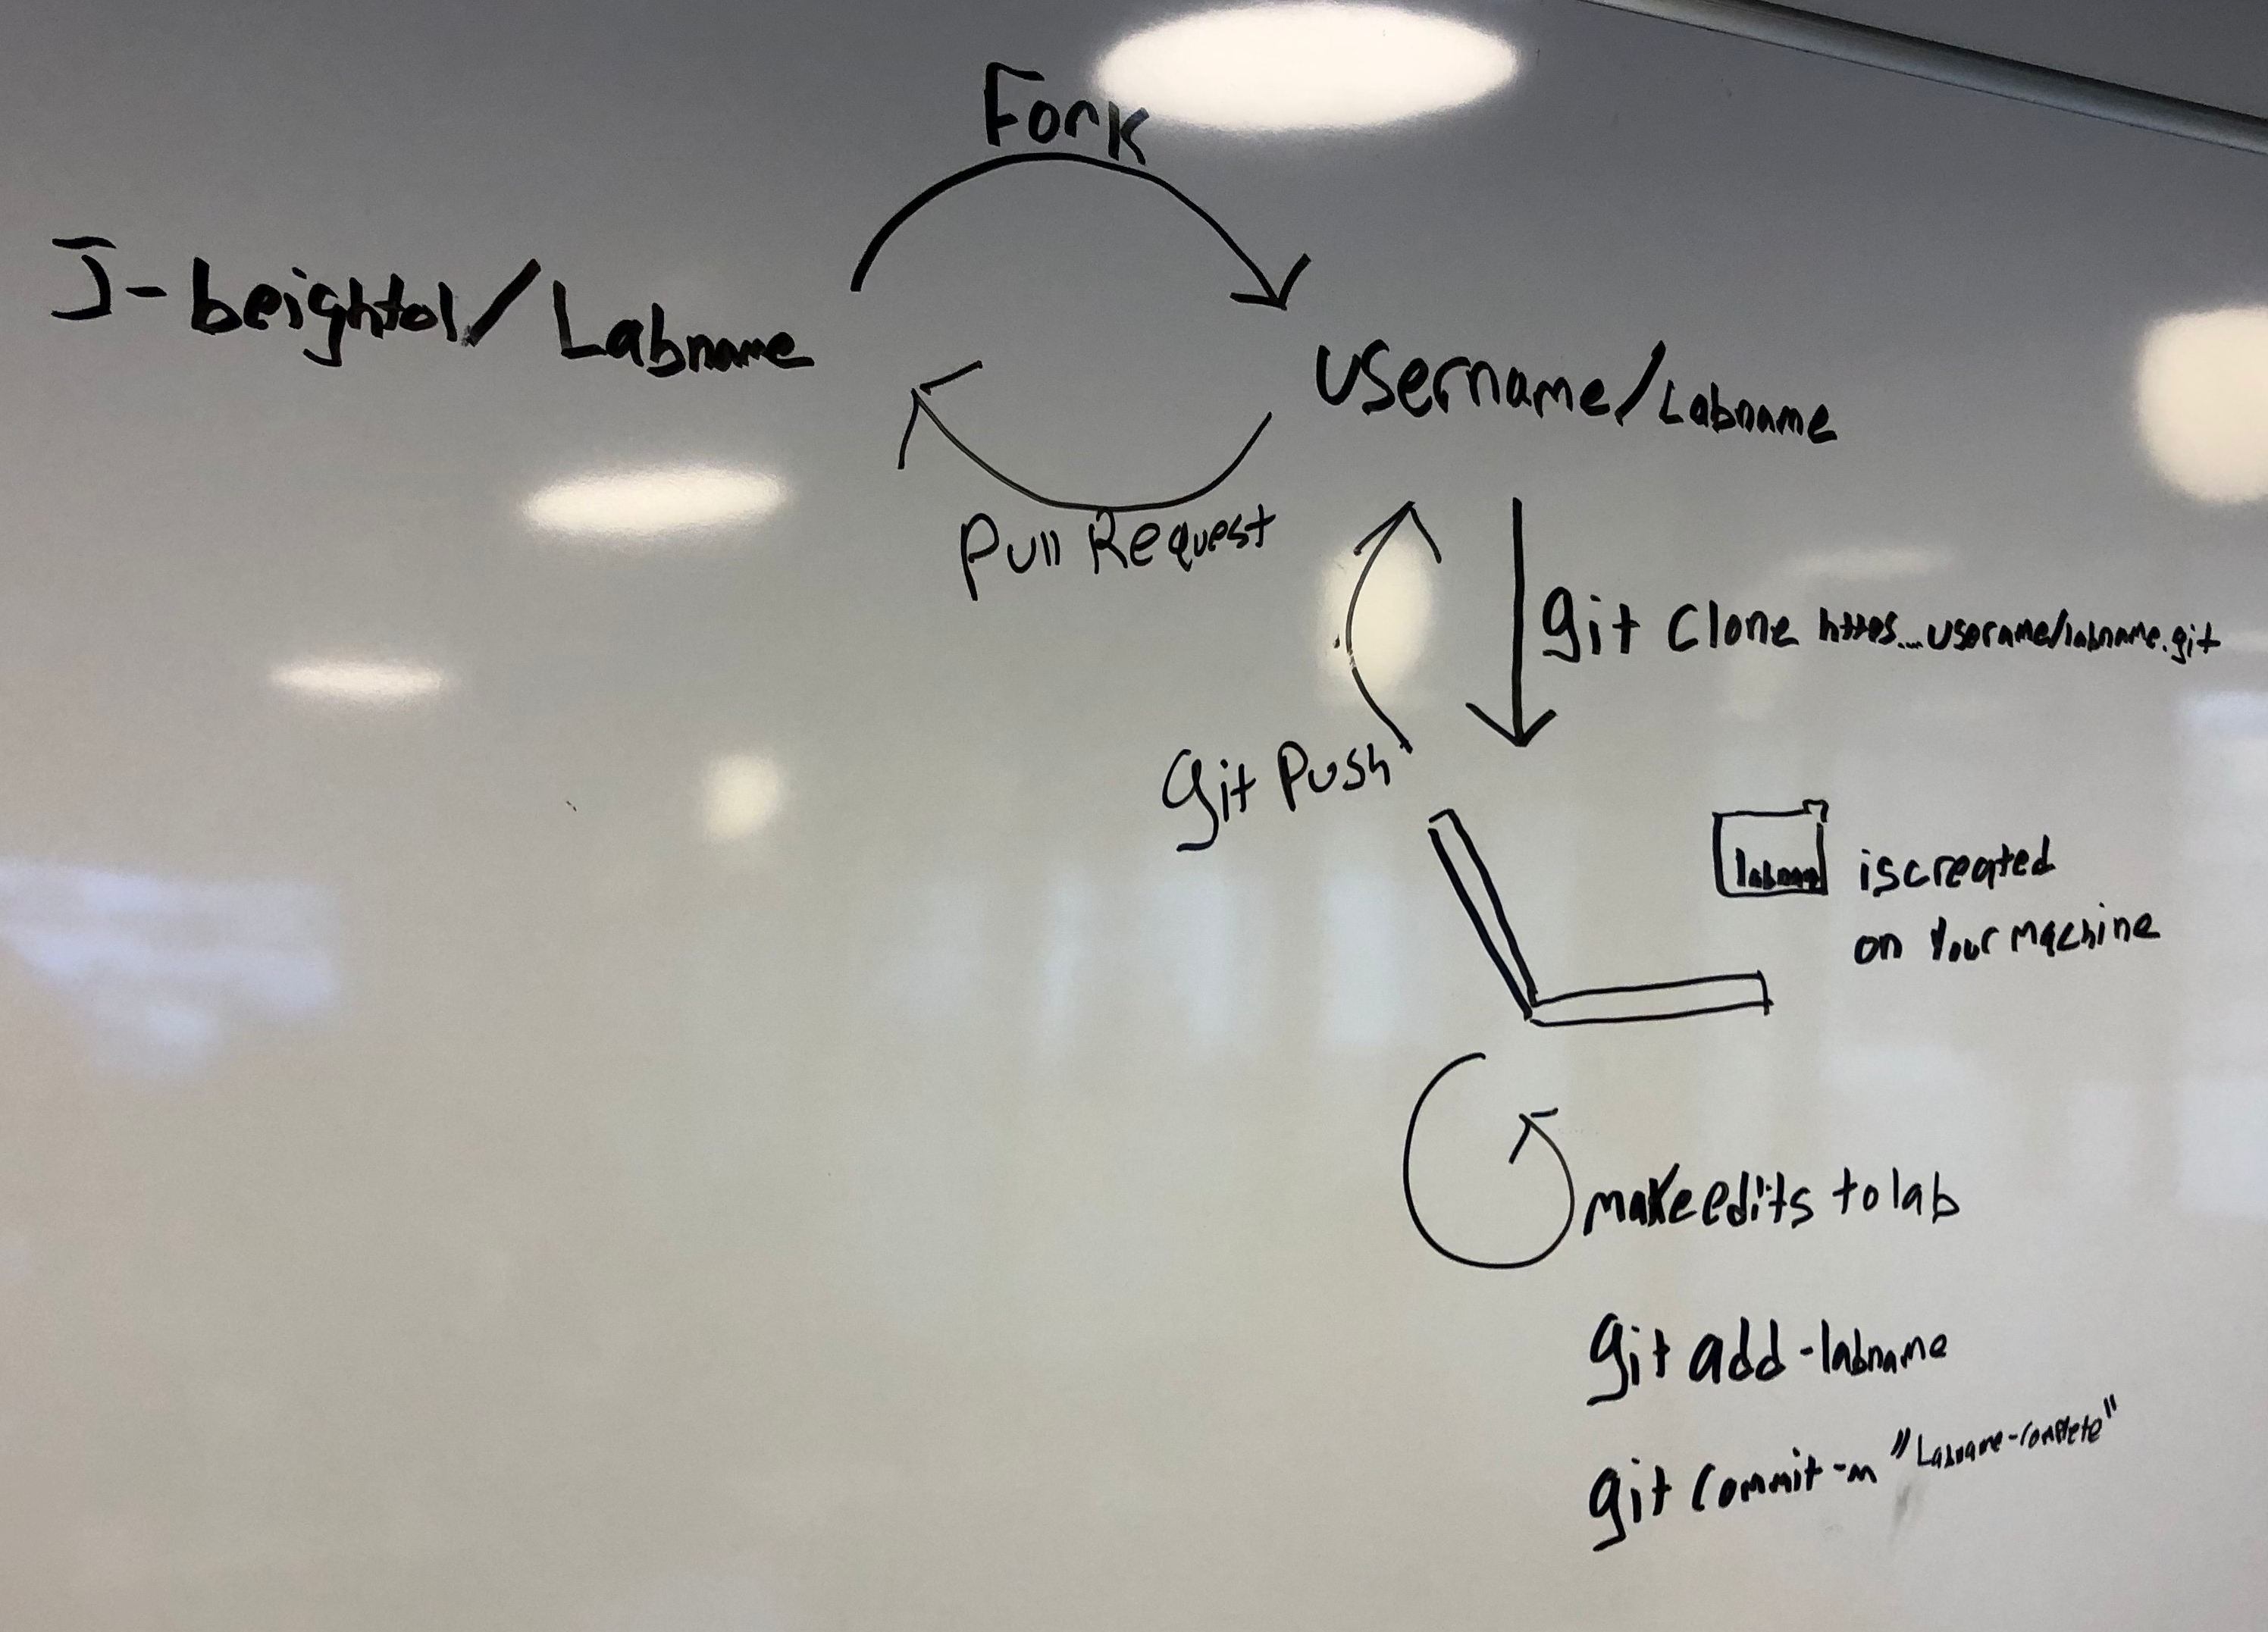 Fork
J-beightol/Labname
username/Labname
Pull Request
git clone https...username/labname.git
git Push
labname is created
on Your machine
make edits to lab
git add -labname
git commit -m "Labname-complete"